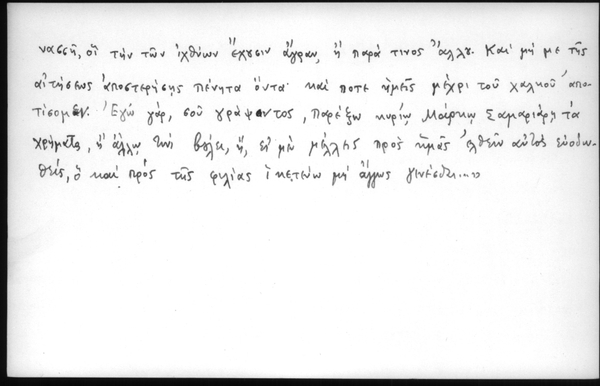 νασσῆ, οἳ τὴν τῶν ἰχθύων ἔχουσιν ἄγραν, ἢ παρά τινος ἄλλου. Καὶ μή με τῆς
αἰτήσεως ἀποστερήσῃς πένητα ὄντα· καί ποτε ἡμεῖς μέχρι τοῦ χαλκοῦ ἀπο-
τίσομεν. Ἐγὼ γάρ, σοῦ γράψαντος, παρέξω κυρίῳ Μάρκῳ Σαμαριάρῃ τὰ
χρήματα, ἢ ἄλλῳ τινὶ βούλει, ἤ, εἰ μὴ μέλλῃς πρὸς ἡμᾶς ἐλθεῖν αὐτὸς εὐοδω-
θείς, ὃ καὶ πρὸς τῆς φιλίας ἱκετεύω μὴ ἄλλως γενέσθαι...